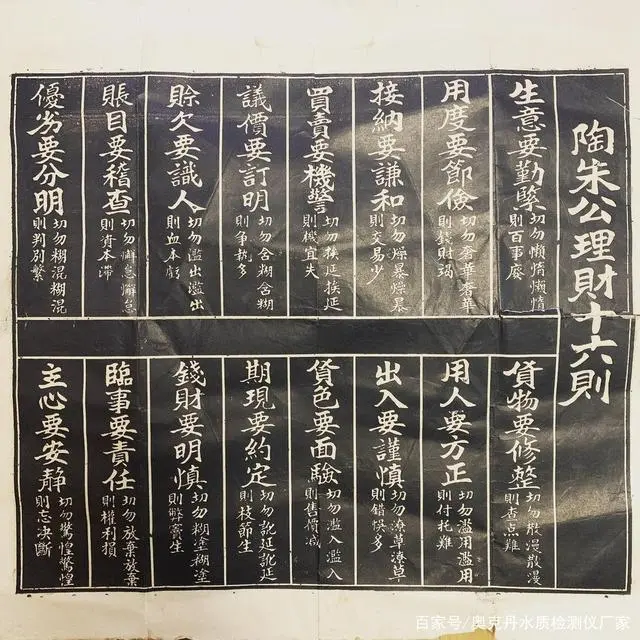 陶朱公理財十六則
生意要勤緊
切勿懶惰懶惰
則百事廢
用度要節儉
切勿奢華奢華
則錢財竭
接納要謙和
切勿燥暴燥暴
則交易少
買賣要機警
切勿挨延挨延
則機宜失
議價要訂明
切勿含糊含糊
則爭執多
賒欠要識人
切勿濫出濫出
則血本虧
賬目要稽查
切勿懈怠懈怠
則資本滯
優劣要分明
切勿糊混糊混
則判別繁
貨物要修整
切勿散漫散漫
則查点難
用人要方正
切勿濫用濫用
則付托難
出入要謹慎
切勿潦草潦草
則錯悞多
貨色要面驗
切勿濫入濫入
則售價減
期現要約定
切勿訛延訛延
則枝節生
錢財要明慎
切勿糊塗糊塗
則弊竇生
臨事要責任
切勿放棄放棄
則權利損
主心要安靜
切勿驚惶驚惶
則忘決斷
百家号/奥克丹水质检测仪厂家